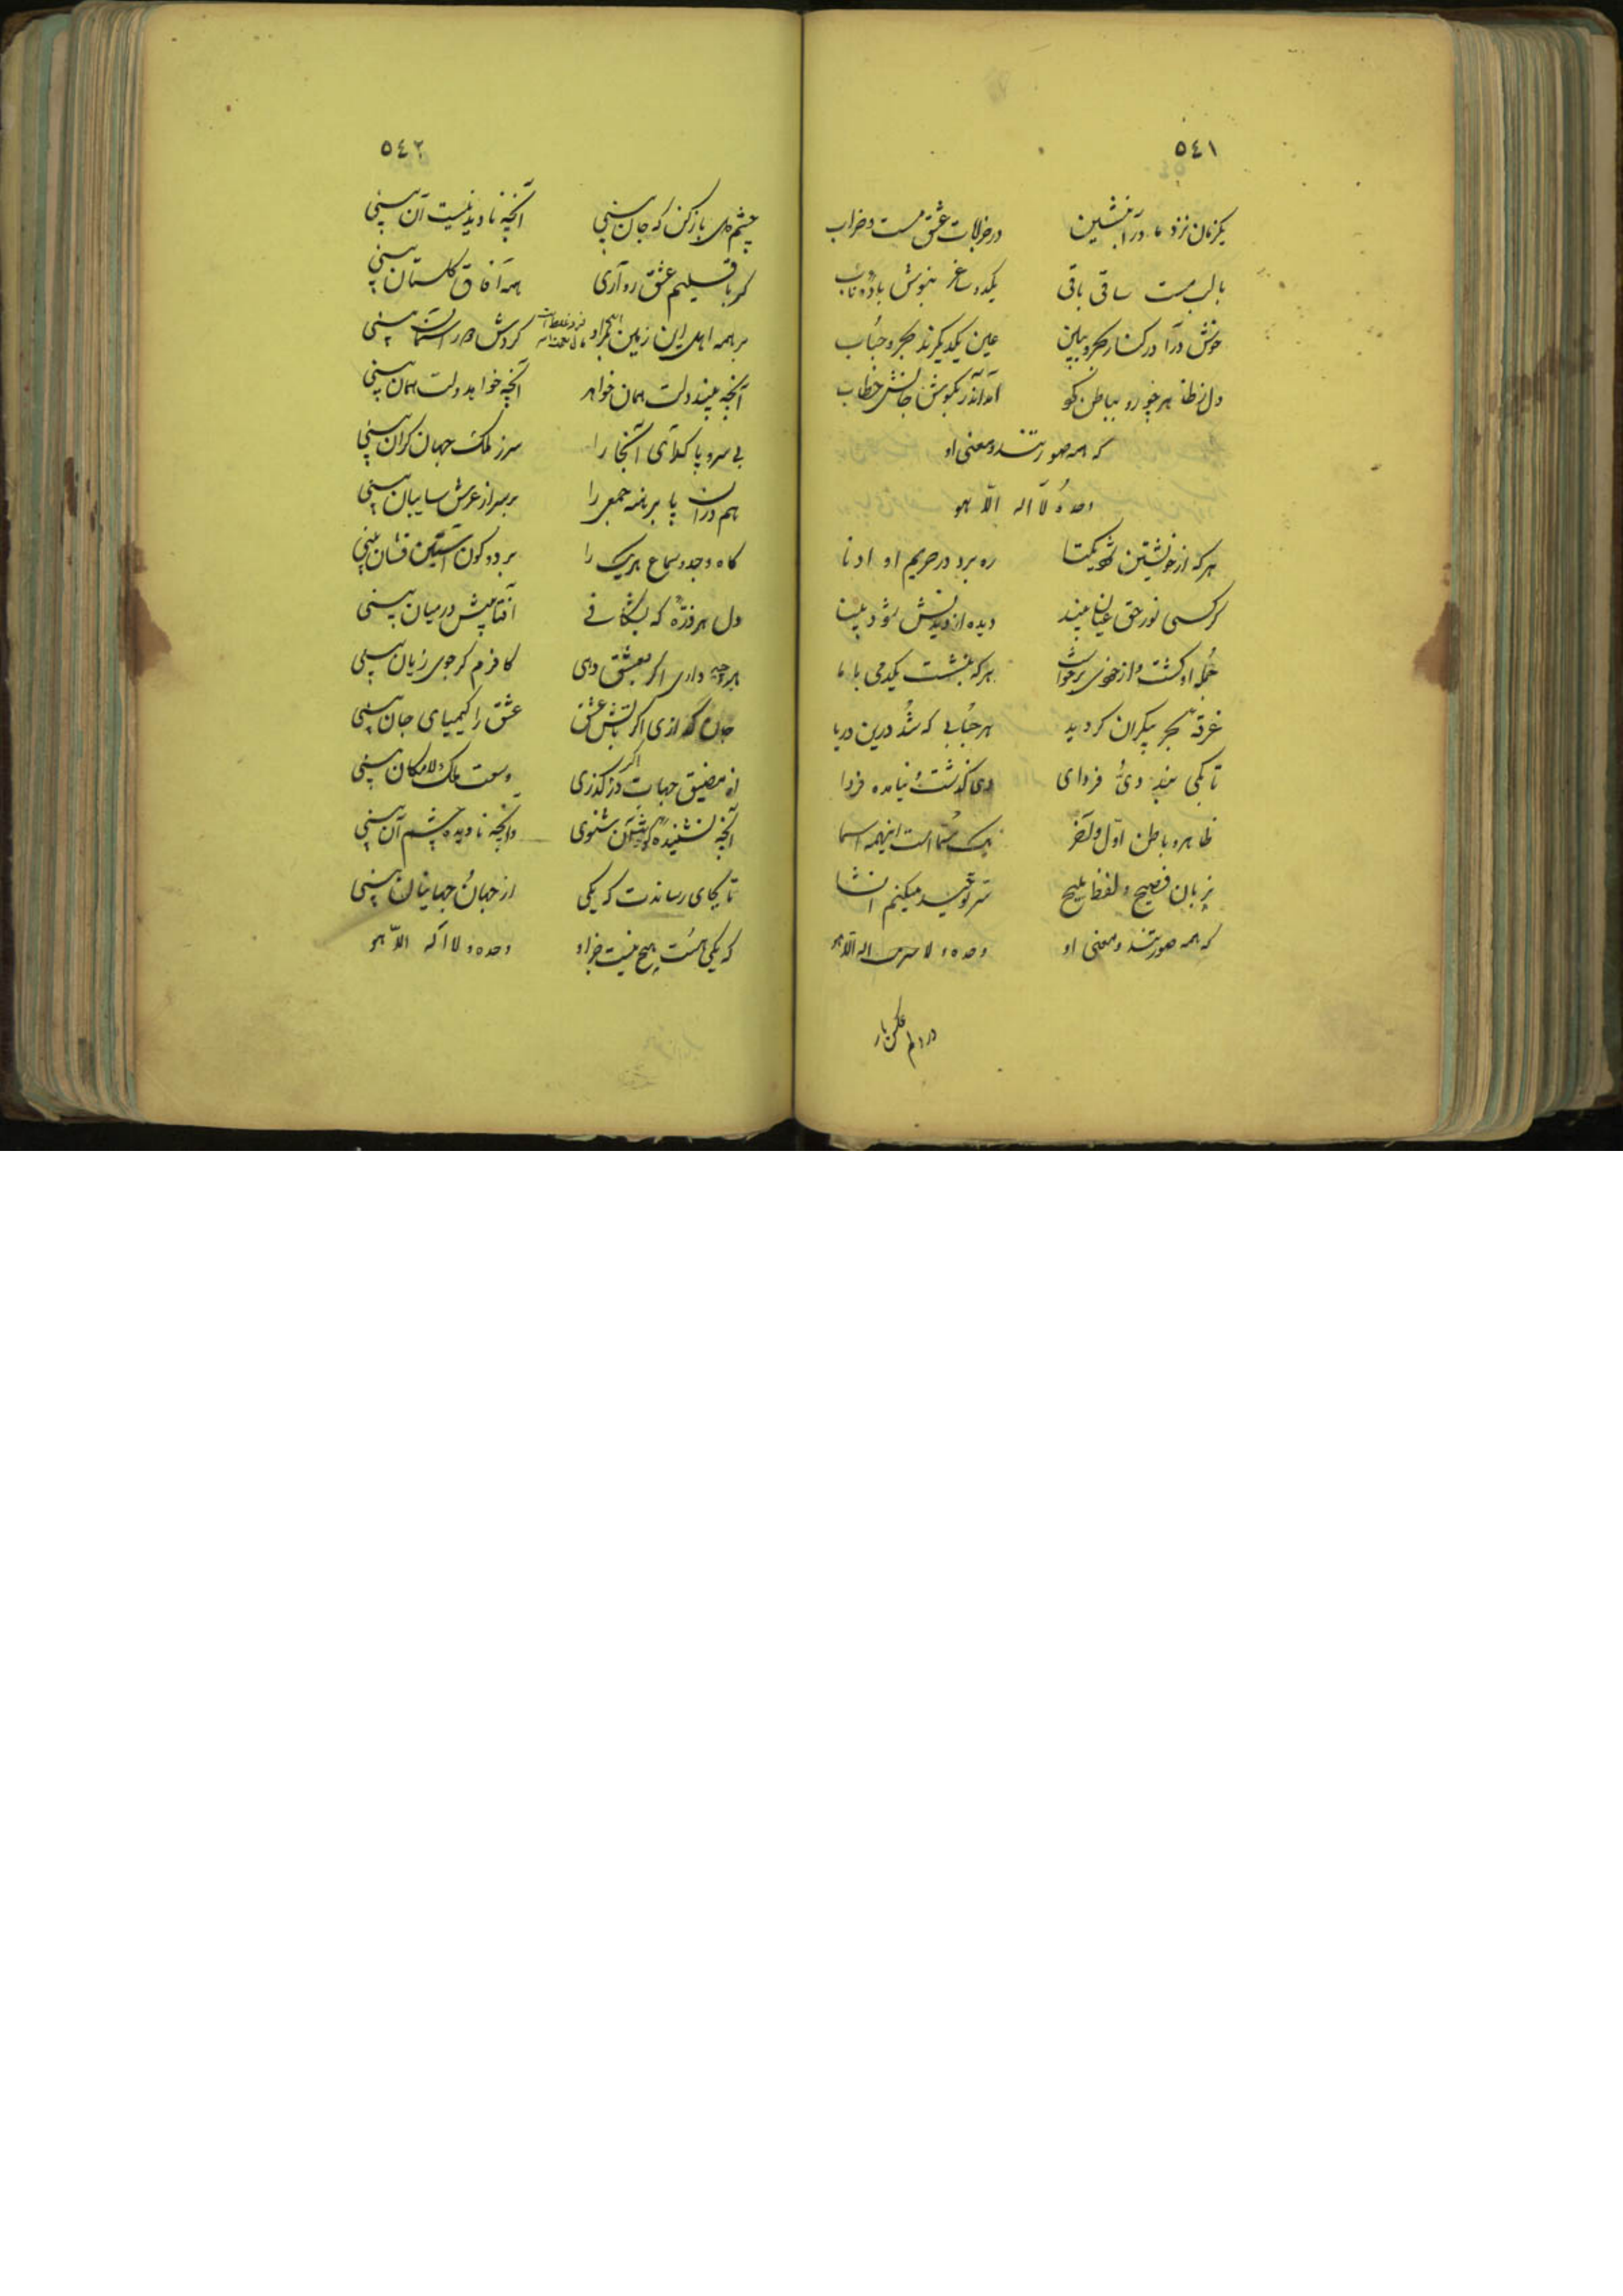 ٥٤١
یکزمان نزد ما درآ بنشین در خرابات عشق مست و خراب
با لب مست ساقی باقی یکدو ساغر بنوش باده ناب
خوش درآ در کنار بحر و ببین عین یکدیگرند بحر و حباب
دل ز ظاهر چو رو بباطن کرد آمد اندر بگوش جانش خطاب
که همه صورتند و معنی او
وحده لا اله الا هو
هر که از خویشتن شود یکتا ره برد در حریم او ادنا
گر کسی نور حق عیان بیند دیده از دیدنش شود بینا
جمله او گشت و از خودی برخواست هر که بنشست یکدمی با ما
غرقه بحر بیکران گردید هر حبابی که شد درین دریا
تا بکی بند دی و فردای دی گذشت و نیامده فردا
ظاهر و باطن اول و آخر یک مسما است اینهمه اسما
بزبان فصیح و لفظ ملیح سر توحید میکنم انشا
که همه صورتند و معنی او وحده لا اله الا هو
در دلم عکس یار
٥٤٢
چشم دل باز کن که جان بینی آنچه نادیدنیست آن بینی
گر باقلیم عشق رو آری همه آفاق گلستان بینی
بر همه اهل این زمین بمراد گردش دور آسمان بینی
آنچه بیند دلت همان خواهد آنچه خواهد دلت همان بینی
بی سر و پا گدای آنجا را سر ز ملک جهان گران بینی
هم در آن پا برهنه جمعی را بر سر از عرش سایبان بینی
گاه وجد و سماع هر یک را بر دو کون آستین فشان بینی
دل هر ذره که بشکافی آفتابیش در میان بینی
هر چه داری اگر بعشق دهی کافرم گر جوی زیان بینی
جان گدازی اگر بآتش عشق عشق را کیمیای جان بینی
از مضیق جهات در گذری وسعت ملک لامکان بینی
آنچه نشنیده گوشت آن شنوی وانچه نادیده چشم آن بینی
تا بجای رساندت که یکی از جهان و جهانیان بینی
که یکی هست هیچ نیست جز او وحده لا اله الا هو